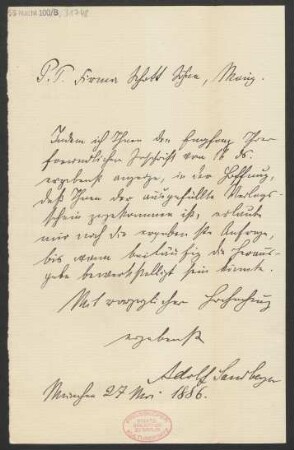 P. T. Firma Schott Söhne, Mainz.
Indem ich Ihnen den Empfang Ihrer
freundlichen Zuschrift vom 18 ds.
ergebenst anzeige, in der Hoffnung,
daß Ihnen der ausgefüllte Verlags-
schein zugekommen ist, erlaube
mir noch die ergebenste Anfrage,
bis wann beiläufig die Heraus-
gabe bewerkstelligt sein könnte.
Mit vorzüglicher Hochachtung
ergebenst
Adolf Sandberger
München 27 Mai 1886.